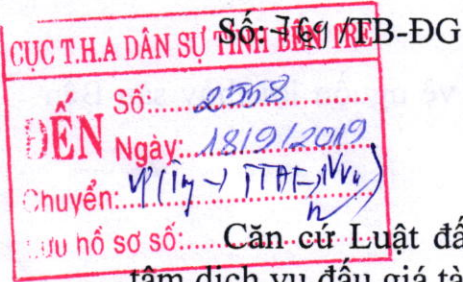 Số: 769 /TB-ĐG
CỤC T.H.A DÂN SỰ TỈNH BẾN TRE
ĐẾN
Số:.....2558
Ngày:...18/9/2019
Chuyển:
Lưu hồ sơ số:
Căn cứ Luật đấ
tâm dịch vụ đấu giá tà